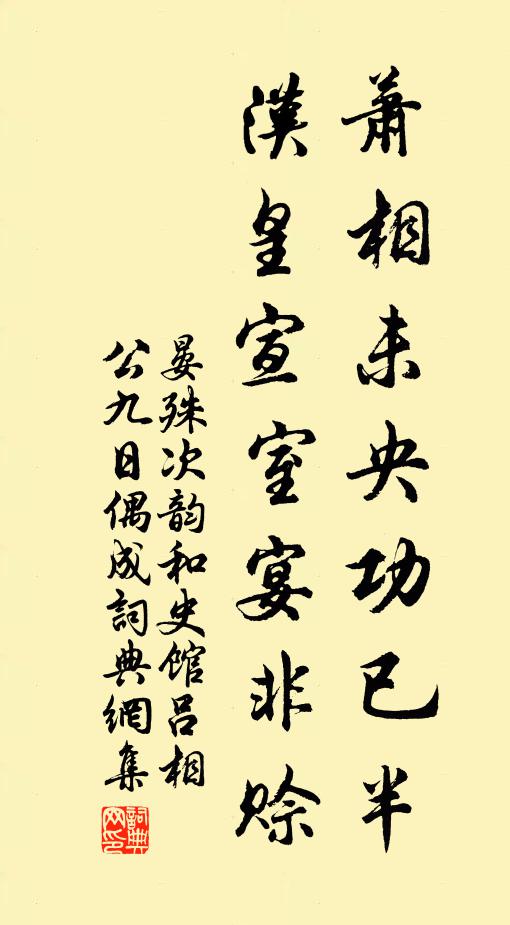 蕭相未央功已半
漢皇宣室宴非賒
晏殊次韵和史館吕相
公九日偶成詞典網集
詞典
网印